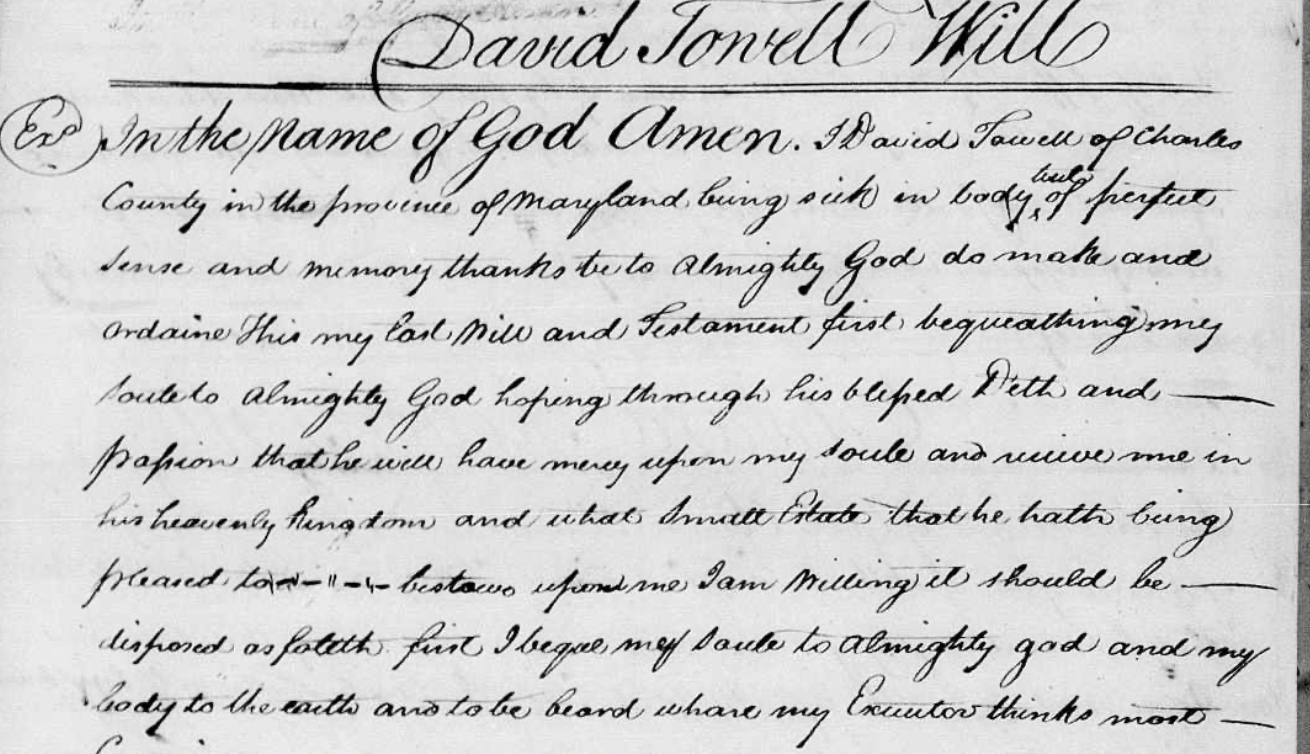 David Towell Will
Exd In the Name of God Amen. I David Towell of Charles
County in the province of Maryland being sick in body but of perfect
sense and memory thanks be to almighty God do make and
ordaine This my Last Will and Testament first bequeathing my
soule to almighty God hoping through his blessed Deth and
passion that he will have mercy upon my soule and recieve me in
his heavenly Kingdom and what small Estate that he hath being
pleased to bestowe upon me I am Willing it should be
disposed as foleth first I beque my soule to almighty god and my
body to the earth and to be beard whare my Executor thinks most